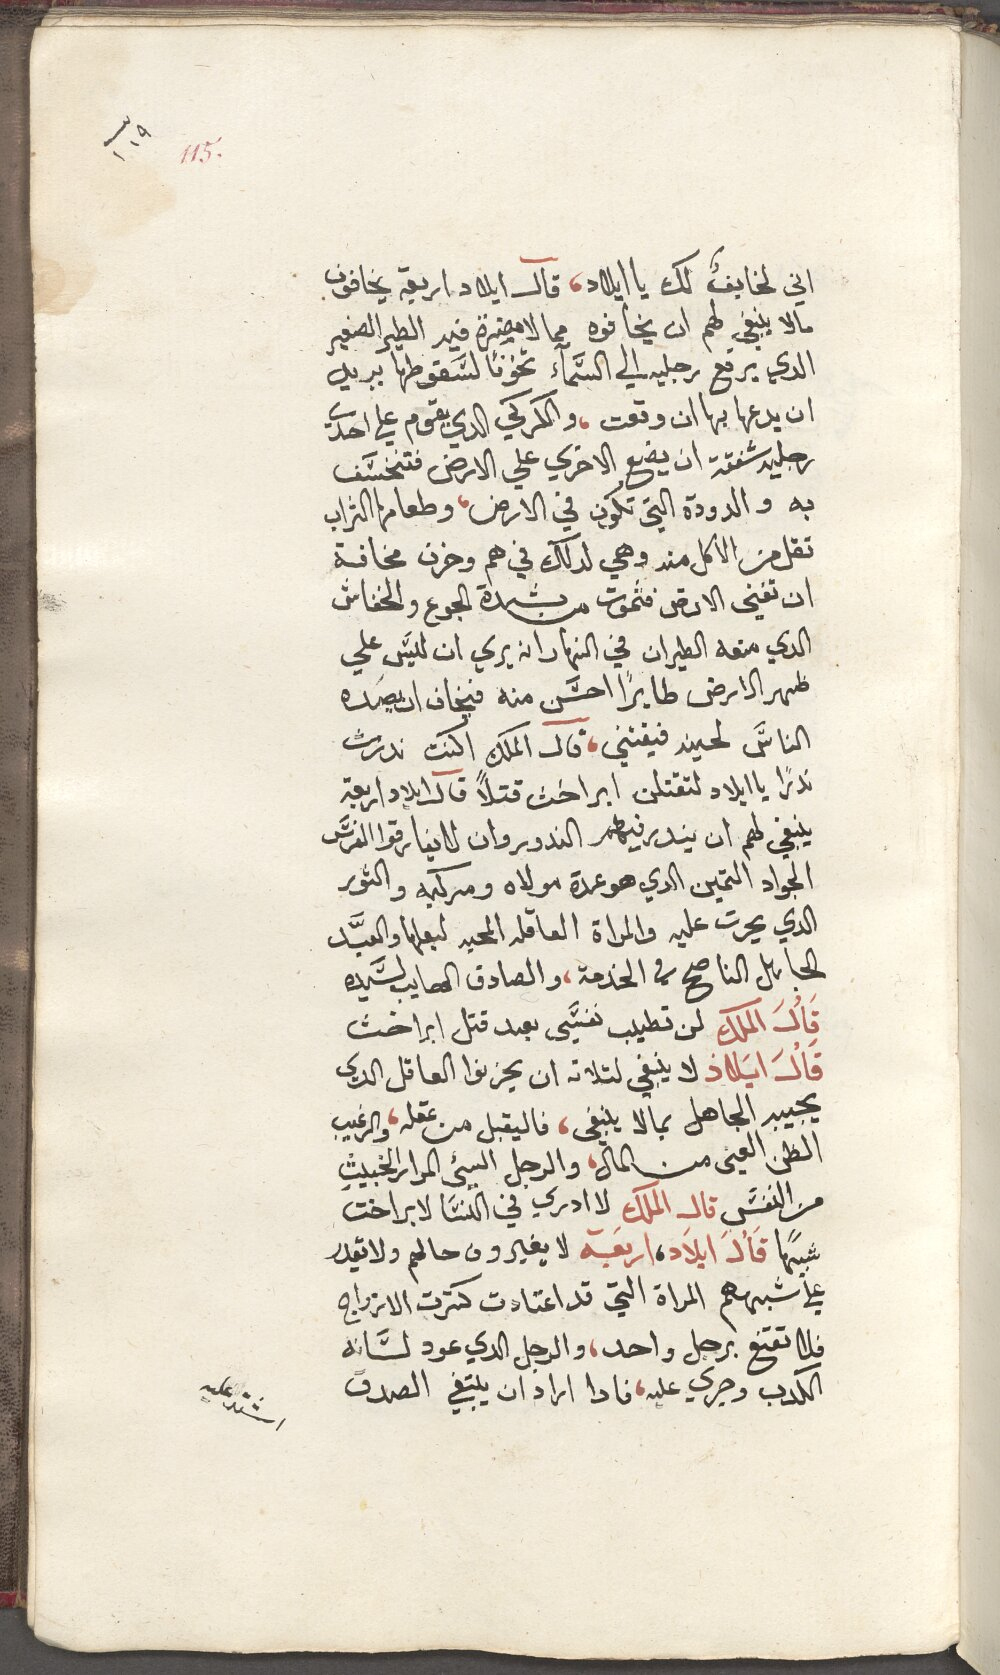 ١٠٩
115.
اني لخايفٌ لك يا ايلاد، قال ايلاد اربعة يخافون
مالا ينبغي لهم ان يخافوه مما لا مضرة فيه الطير الصغير
الدي يرفع رجليه الي السَّمآء تخوّفًا لسَّقوطها يريد
ان يدعمها بها ان وقعت، والكركي الدي يقوم علي احدي
رجليه شفقة ان يضع الاخري علي الارض فتنخسَّف
به والدودة التي تكون في الارض، وطعامها التراب
تقل من الاكل منه وهي لدلك في هم وحزن مخافة
ان تفني الارض فتموت من شدة الجوع والخفاش
الدي منعه الطيران في النهار انه يري ان لليسَّ علي
ظهر الارض طايرًا احسَّن منه فيخاف ان تصيده
الناسَّ لحينه فيقتني، قال الملك اكنت ندرت
ندرًا يا ايلاد لتقتلن ابراخت قتلاً قال ايلاد اربعة
ينبغي لهم ان يندر فيهم الندور وان لا يفارقوا الفرسَّ
الجواد التمين الدي هو عمدة مولاه ومركبه والتور
الدي يحرت عليه والمراة العاقله المحبه لبعلها والعبَّد
الجاهل الناصح في الخدمة، والصادق الهايب لسَّيده
قَالَ الملك لن تطيب نفسَّي بعد قتل ابراخت
قَالَ ايلاد لا ينبغي لتلاته ان يحزنوا العاقل الدي
يجيب الجاهل بما لا ينبغي، فاليقبل من عقله، والرغيب
البطن الغني من المال، والرجل السيئ المرار الخبيث
من النفسَّ قال الملك لا ادري في النسَّا لابراخت
شبيهًا قَالَ ايلاد، اربعَة لا يغيرون حالهم ولا يقدر
علي شبههم المراة التي قد اعتادت كترت الازواج
فلا تقنع برجل واحد، والرجل الدي عود لسَّانه
الكدب وجري عليه، فادا اراد ان يبتغي الصدق
اشتد عليه